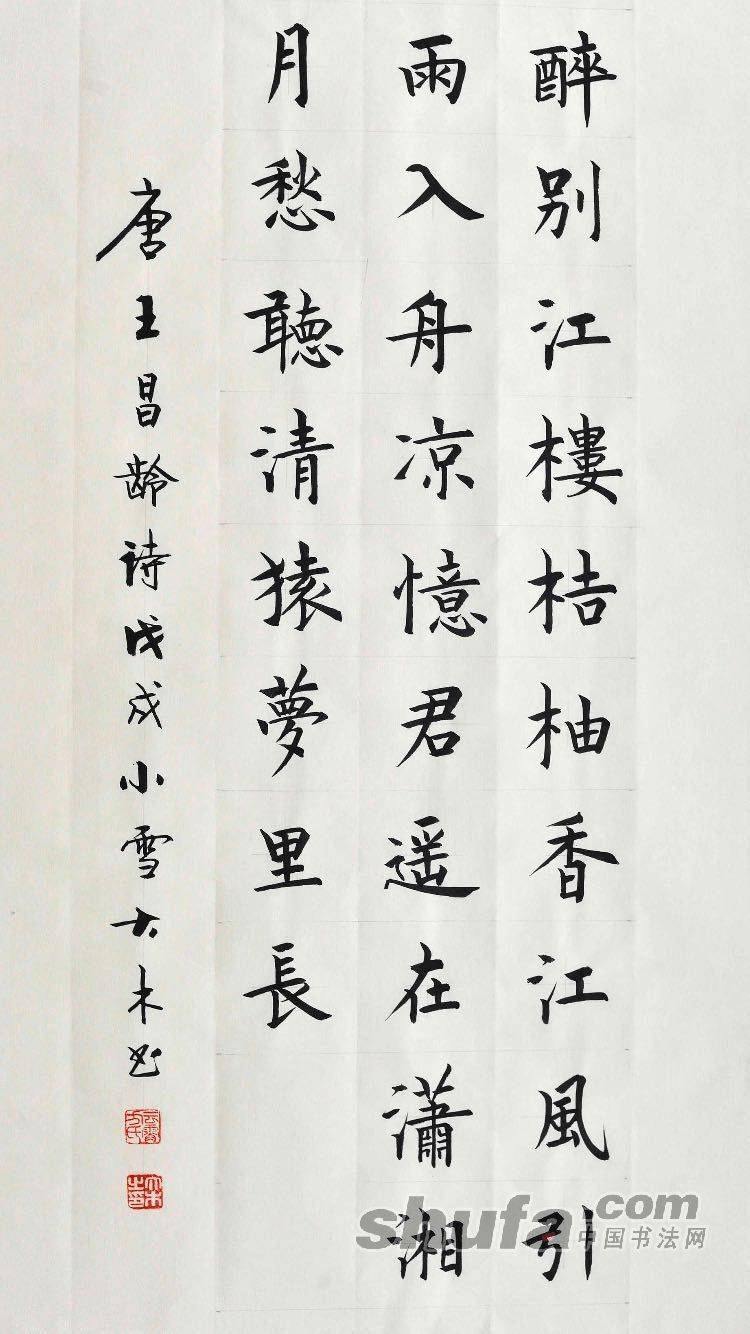 醉别江樓桔柚香江風引
雨入舟凉憶君遥在瀟湘
月愁聽清猿夢里長
唐王昌龄诗戊戌小雪大木书
shufa.com
中国书法网